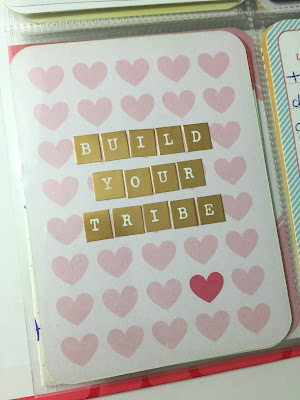 BUILD
YOUR
TRIBE